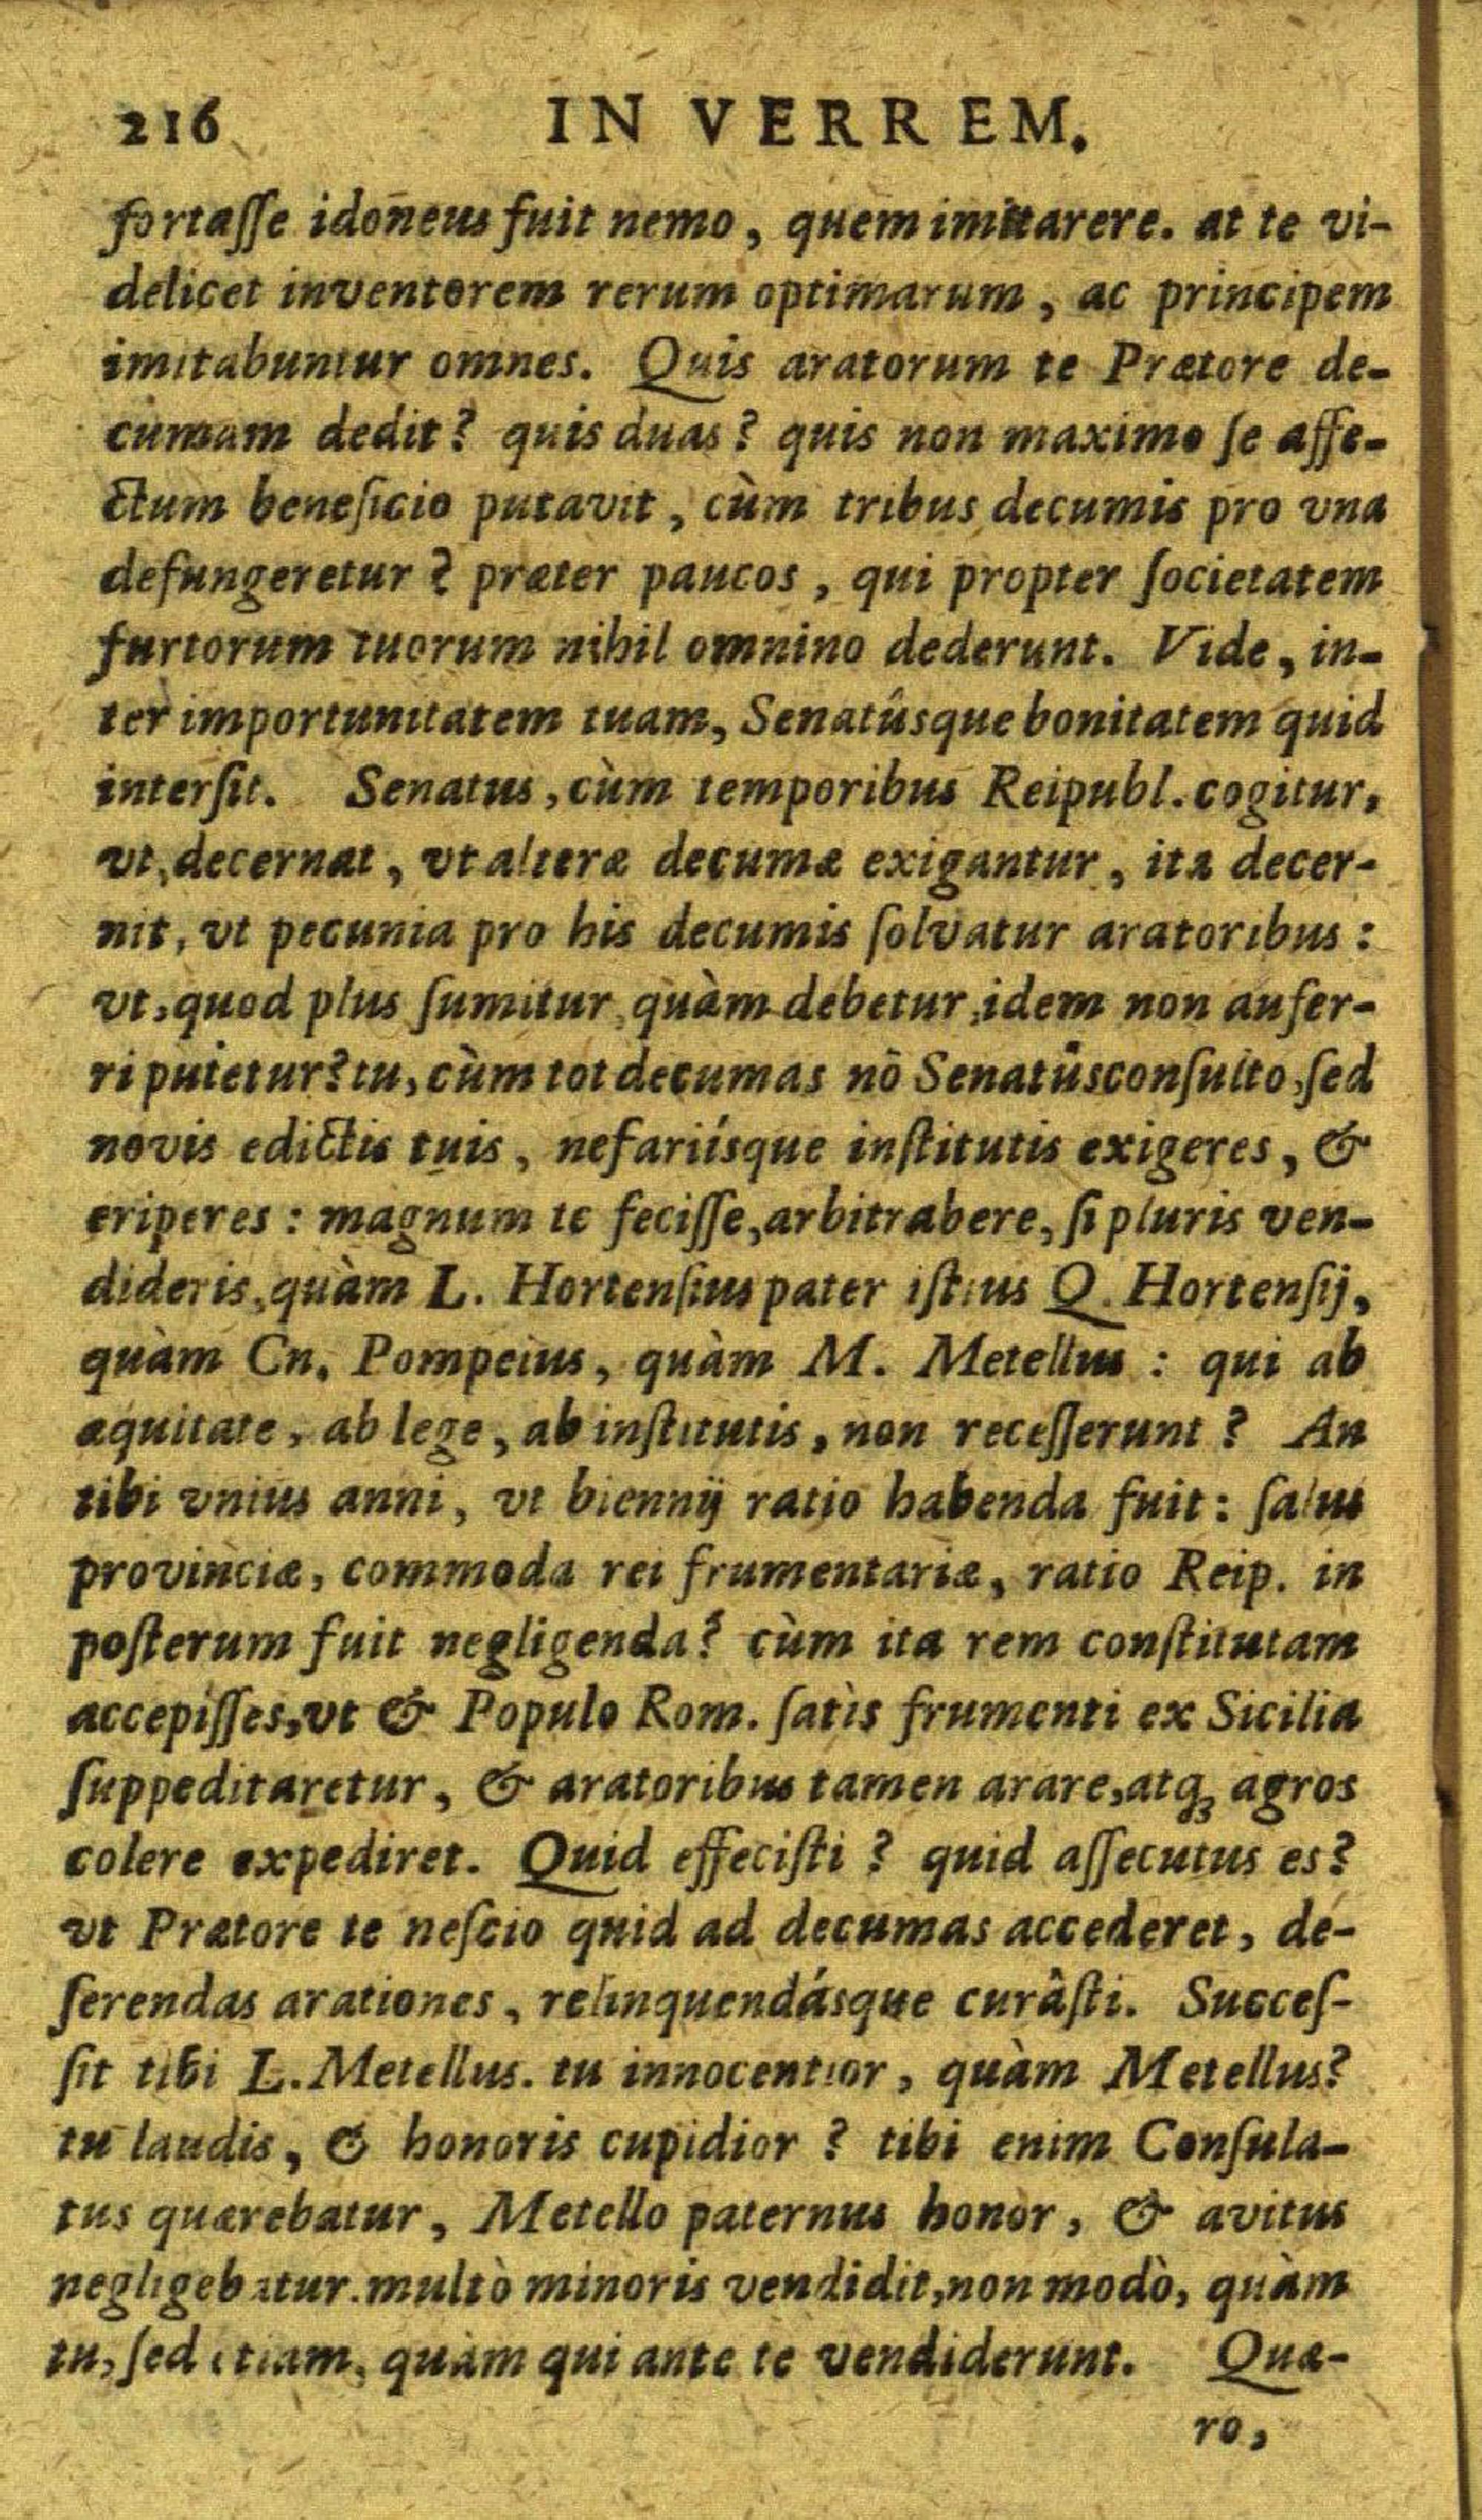 216 IN VERREM.
fortaſſe idoneus fuit nemo, quem imitarere. at te vi-
delicet inventorem rerum optimarum, ac principem
imitabuntur omnes. Quis aratorum te Prætore de-
cumam dedit? quis duas? quis non maximo ſe affe-
ctum beneficio putavit, cùm tribus decumis pro vna
defungeretur? præter paucos, qui propter ſocietatem
furtorum tuorum nihil omnino dederunt. Vide, in-
ter importunitatem tuam, Senatûsque bonitatem quid
interſit. Senatus, cùm temporibus Reipubl. cogitur,
vt, decernat, vt alteræ decumæ exigantur, ita decer-
nit, vt pecunia pro his decumis ſolvatur aratoribus:
vt, quod plus ſumitur, quàm debetur, idem non aufer-
ri putetur? tu, cùm tot decumas nō Senatûsconſulto, ſed
novis edictis tuis, nefariísque inſtitutis exigeres, &
eriperes: magnum te feciſſe, arbitrabere, ſi pluris ven-
dideris, quàm L. Hortenſius pater iſtius Q. Hortenſij,
quàm Cn. Pompeius, quàm M. Metellus: qui ab
æquitate, ab lege, ab inſtitutis, non receſſerunt? An
tibi vnius anni, vt biennij ratio habenda fuit: ſalus
provinciæ, commoda rei frumentariæ, ratio Reip. in
poſterum fuit negligenda? cùm ita rem conſtitutam
accepiſſes, vt & Populo Rom. ſatis frumenti ex Sicilia
ſuppeditaretur, & aratoribus tamen arare, atq; agros
colere expediret. Quid effeciſti? quid aſſecutus es?
vt Prætore te neſcio quid ad decumas accederet, de-
ſerendas arationes, relinquendásque curâſti. Succeſ-
ſit tibi L. Metellus. tu innocentior, quàm Metellus?
tu laudis, & honoris cupidior? tibi enim Conſula-
tus quærebatur, Metello paternus honor, & avitus
negligebatur. multò minoris vendidit, non modò, quàm
tu, ſed etiam, quàm qui ante te vendiderunt. Quæ-
ro,